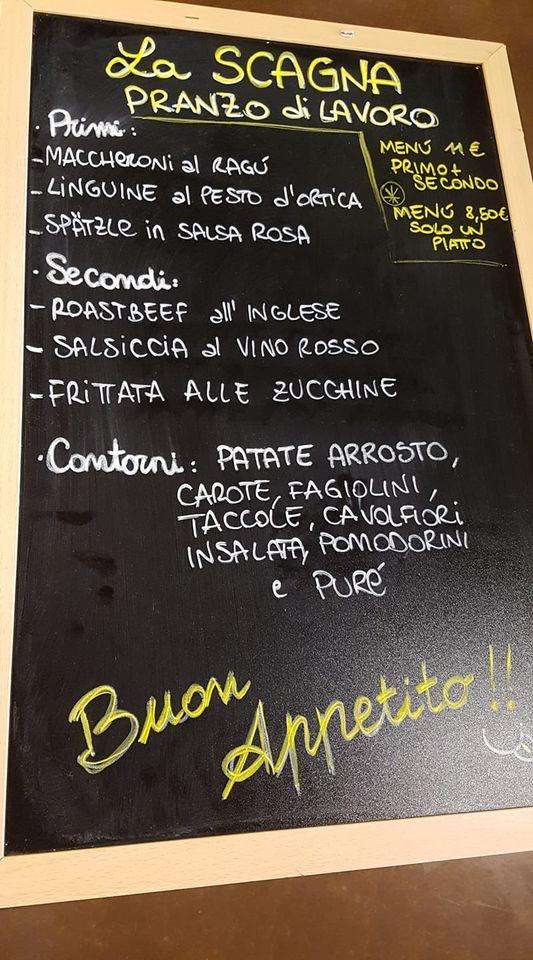 La SCAGNA
PRANZO di LAVORO
· Primi:
- MACCHERONI al RAGÚ
- LINGUINE al PESTO d'ORTICA
- SPÄTZLE in SALSA ROSA
MENÚ 11 €
PRIMO +
SECONDO
MENÚ 8,50€
SOLO UN
PIATTO
· Secondi:
- ROASTBEEF all' INGLESE
- SALSICCIA al VINO ROSSO
- FRITTATA ALLE ZUCCHINE
· Contorni: PATATE ARROSTO,
CAROTE, FAGIOLINI,
TACCOLE, CAVOLFIORI
INSALATA, POMODORINI
e PURÉ
Buon
Appetito!!